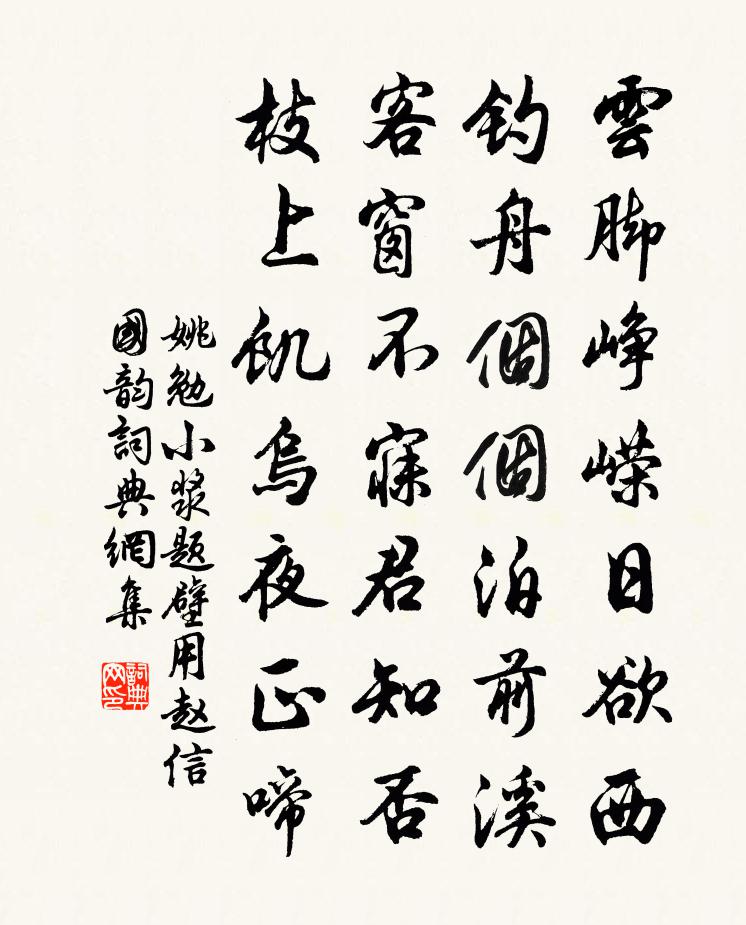 雲脚崢嶸日欲西
钓舟個個泊前溪
客窗不寐君知否
枝上飢烏夜正啼
姚勉小漿题壁用赵信
國韵詞典網集
詞典
网印